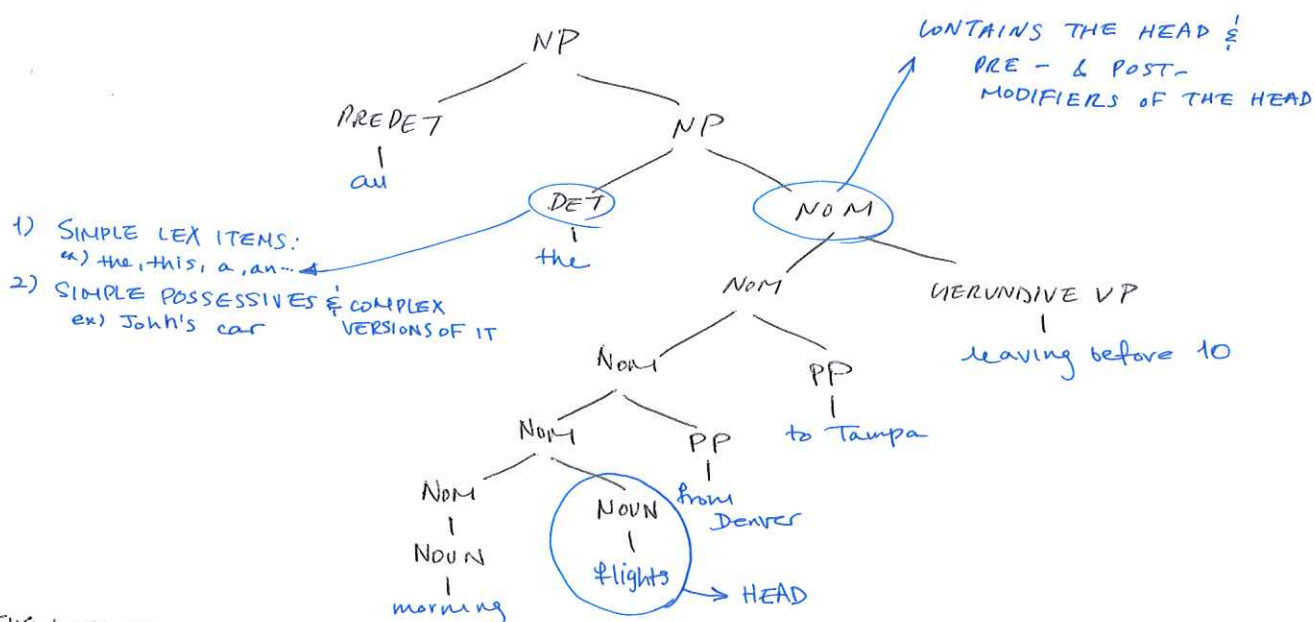 NP
CONTAINS THE HEAD &
PRE- & POST-
MODIFIERS OF THE HEAD
PREDET
NP
all
DET
NOM
the
1) SIMPLE LEX ITEMS:
ex) the, this, a, an...
2) SIMPLE POSSESSIVES & COMPLEX
VERSIONS OF IT
ex) John's car
NOM
GERUNDIVE VP
leaving before 10
NOM
PP
to Tampa
NOM
PP
from
Denver
NOM
NOUN
NOUN
flights
HEAD
morning